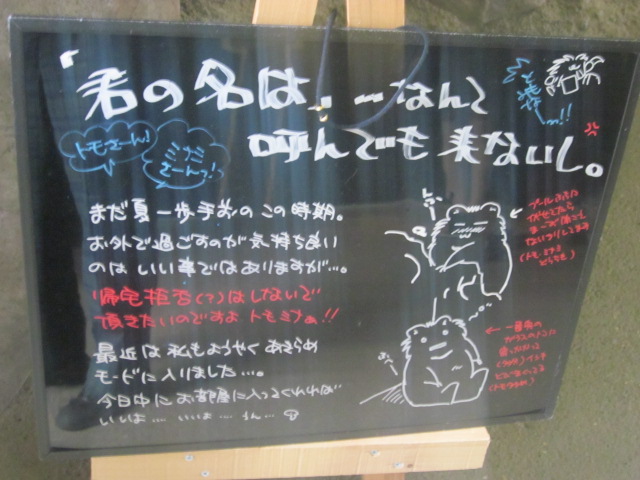 「君の名は．ーなんて
呼んでも来ないし。
トモさーん！
ミナミ
さーんっ！
まだ夏一歩手前のこの時期。
お外で過ごすのが気持ち良い
のはいい事ではありますが…。
帰宅拒否(？)はしないで
頂きたいのですよ トモミナぁ!!
最近は私もようやくあきらめ
モードに入りました…。
今日中にお部屋に入ってくれれば
いいよ…. いいよ…. うん…。
(トモミナミ
どちらも)
←一番奥の